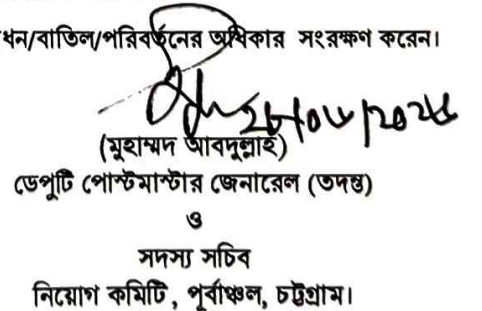 ধন/বাতিল/পরিবর্তনের অধিকার সংরক্ষণ করেন।
(মুহাম্মদ আবদুল্লাহ)
ডেপুটি পোস্টমাস্টার জেনারেল (তদন্ত)
ও
সদস্য সচিব
নিয়োগ কমিটি, পূর্বাঞ্চল, চট্টগ্রাম।